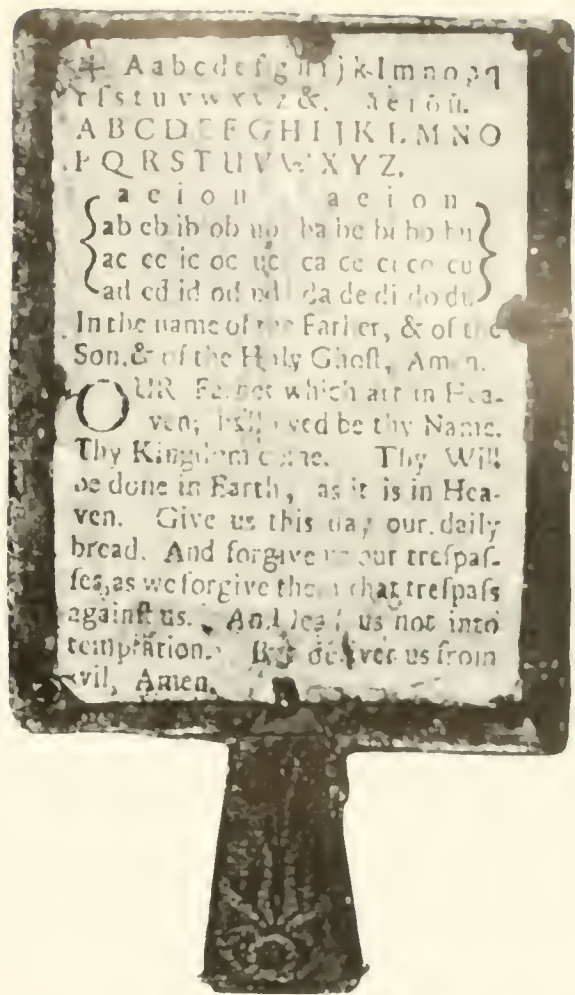 ✠ A a b c d e f g h i j k l m n o p q
r ſ s t u v w x y z &. a e i o u.
A B C D E F G H I J K L M N O
P Q R S T U V W X Y Z.
a e i o u a e i o u
ab eb ib ob ub ba be bi bo bu
ac ec ic oc uc ca ce ci co cu
ad ed id od ud da de di do du
In the name of the Father, & of the
Son, & of the Holy Ghoſt, Amen.
OUR Father which art in Hea-
ven; hallowed be thy Name.
Thy Kingdom come. Thy Will
be done in Earth, as it is in Hea-
ven. Give us this day our daily
bread. And forgive us our treſpaſ-
ſes, as we forgive them that treſpaſs
againſt us. And lead us not into
temptation. But deliver us from
evil, Amen.